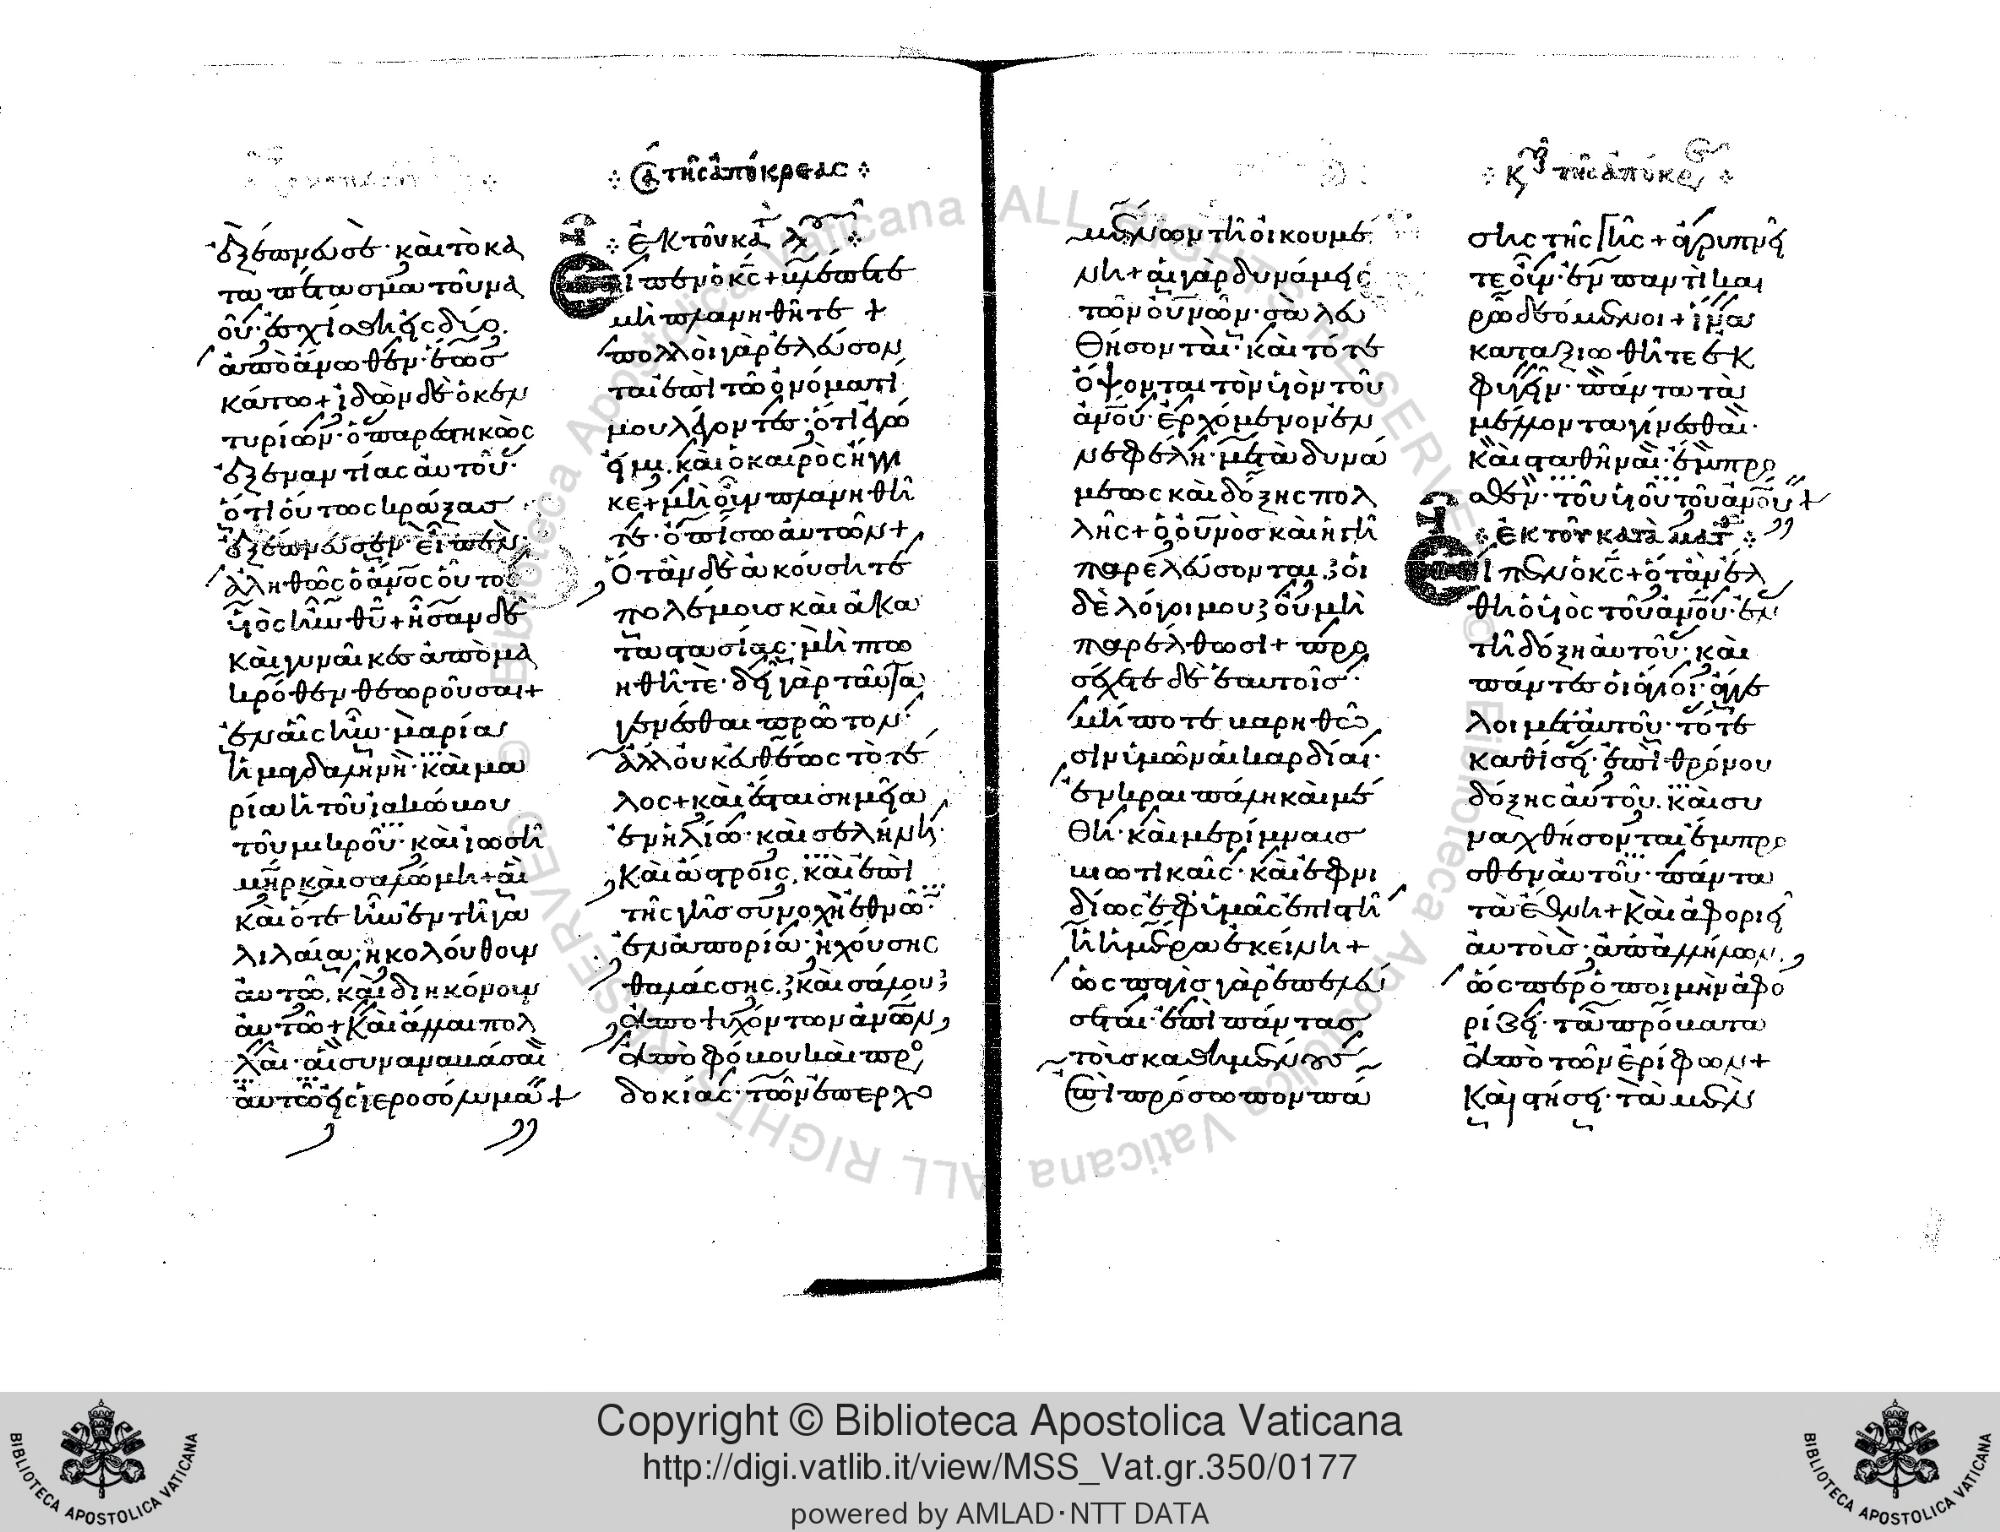 σα τῆς ἀπόκρεας
ἐξέπνευσε· καὶ τὸ κα
τα πέτασμα τοῦ να
οῦ· ἐσχίσθη εἰς δύο.
ἀπὸ ἄνωθεν· ἕως
κάτω + ἰδὼν δὲ ὁ κεν
τυρίων· ὁ παρεστηκὼς
ἐξεναντίας αὐτοῦ·
ὅτι οὕτως κράξας
ἐξέπνευσεν εἶπεν·
ἀληθῶς ὁ ἀνος οὗτος
υἱὸς ἦν θυ + ἦσαν δὲ
καὶ γυναῖκες ἀπὸ μα
κρόθεν θεωροῦσαι +
ἐν αἷς ἦν· μαρία
ἡ μαγδαληνὴ· καὶ μα
ρία ἡ τοῦ ἰακώβου
τοῦ μικροῦ· καὶ ἰωσῆ
μηρ καὶ σαλώμη + αἳ
καὶ ὅτε ἦν ἐν τῆ γα
λιλαία· ἠκολούθουν
αὐτῶ, καὶ διηκόνουν
αὐτῶ + Καὶ ἄλλαι πολ
λαὶ· αἱ συναναβᾶσαι
αὐτῶ εἰς ἱεροσόλυμα +
τῆς ἀπόκρεας
ἐκ τοῦ κατ λου
Εἶπεν ὁ κς + βλέπετε
μὴ πλανηθῆτε +
πολλοὶ γὰρ ἐλεύσον
ται ἐπὶ τῶ ὀνόματί
μου λέγοντες· ὅτι ἐγώ
εἰμι. καὶ ὁ καιρὸς ἤγγι
κε + μὴ οὖν πλανηθῆ
τε· ὀπίσω αὐτῶν +
Ὅταν δὲ ἀκούσητε
πολέμους καὶ ἀκα
ταστασίας· μὴ πτο
ηθῆτε· δεῖ γὰρ ταῦτα
γενέσθαι πρῶτον·
ἀλλ οὐκ εὐθέως τὸ τέ
λος + καὶ ἔσται σημεῖα
ἐν ἡλίω· καὶ σελήνη·
Καὶ ἄστροις, καὶ ἐπὶ
τῆς γῆς συνοχὴ ἐθνῶ·
ἐν ἀπορία· ἠχούσης
θαλάσσης, καὶ σάλου
ἀποψυχόντων ἀνων,
ἀπὸ φόβου καὶ προσ
δοκίας· τῶν ἐπερχο
μένων τῆ οἰκουμέ
νη + αἱ γὰρ δυνάμεις
τῶν οὐνων· σαλευ
θήσονται· καὶ τότε
ὄψονται τὸν υἱὸν τοῦ
ἀνου· ἐρχόμενον ἐν
νεφέλη· μετὰ δυνά
μεως καὶ δόξης πολ
λῆς + ὁ οὐνος καὶ ἡ γῆ
παρελεύσονται, οἱ
δὲ λόγοι μου οὐ μὴ
παρέλθωσι + προ
σέχετε δὲ ἑαυτοῖς·
μή ποτε βαρηθῶ
σιν ὑμῶν αἱ καρδίαι·
ἐν κραιπάλη καὶ μέ
θη· καὶ μερίμναις
βιωτικαῖς· καὶ ἐφνι
δίως ἐφ ὑμᾶς ἐπιστῆ
ἡ ἡμέρα ἐκείνη +
ὡς παγὶς γὰρ ἐπελεύ
σεται· ἐπὶ πάντας
τοὺς καθημένους
ἐπὶ πρόσωπον πά
κυ τῆς ἀπόκρε
σης τῆς γῆς + ἀγρυπνεῖ
τε οὖν· ἐν παντὶ και
ρῶ δεόμενοι + ἵνα
καταξιωθῆτε ἐκ
φυγεῖν· πάντα τὰ
μέλλοντα γίνεσθαι·
καὶ σταθῆναι· ἔμπρο
σθεν· τοῦ υἱοῦ τοῦ ἀνου +
ἐκ τοῦ κατὰ ματ
Εἶπεν ὁ κς + ὅταν ἔλ
θη ὁ υἱὸς τοῦ ἀνου· ἐν
τῆ δόξη αὐτοῦ· καὶ
πάντες οἱ ἅγιοι· ἄγγε
λοι μετ αὐτοῦ· τότε
καθίσει· ἐπὶ θρόνου
δόξης αὐτοῦ. καὶ συ
ναχθήσονται ἔμπρο
σθεν αὐτοῦ· πάντα
τὰ ἔθνη + Καὶ ἀφοριεῖ
αὐτοὺς· ἀπ ἀλλήλων,
ὥσπερ ὁ ποιμὴν ἀφο
ρίζει· τὰ πρόβατα
ἀπὸ τῶν ἐρίφων +
Καὶ στήσει· τὰ μὲν
Copyright © Biblioteca Apostolica Vaticana
http://digi.vatlib.it/view/MSS_Vat.gr.350/0177
powered by AMLAD·NTT DATA